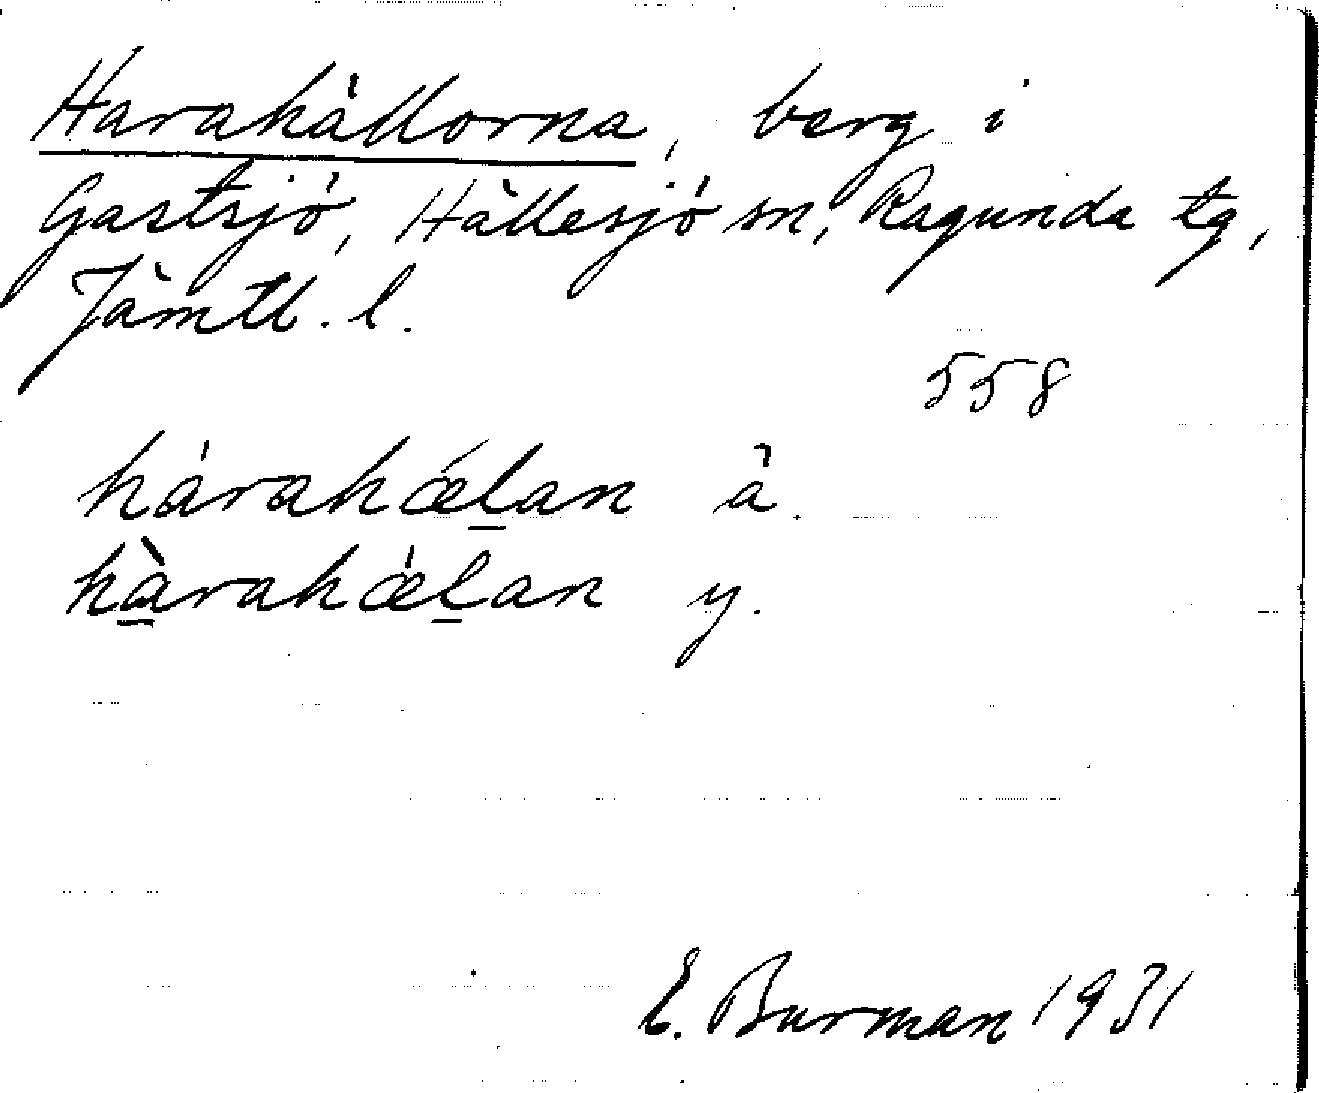 Harahällorna, berg i
Gastsjö, Hällesjö sn, Ragunda tg,
Jämtl. l.
558
hárahǽl̲an ä.
hà̲rahǽl̲an y.
E. Burman 1931